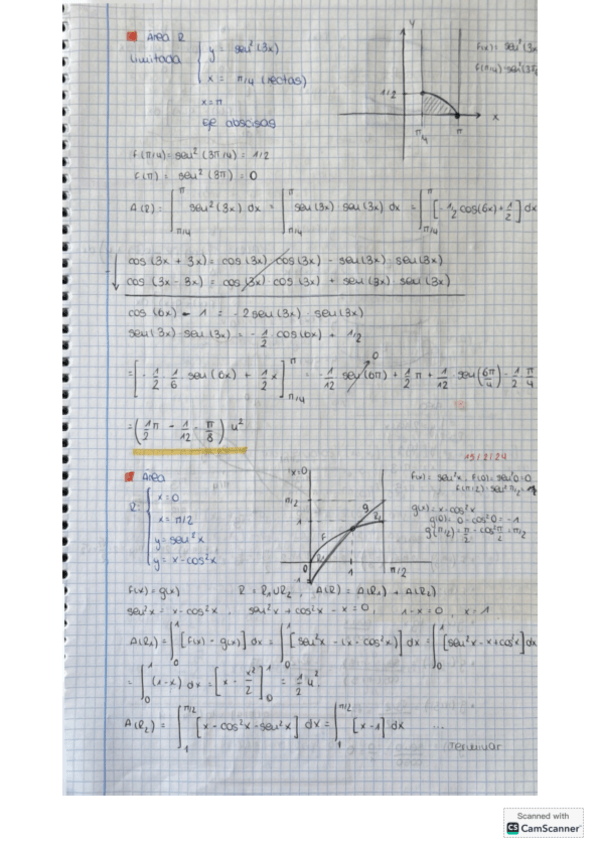 Área R
limitada
y = sen²(3x)
x = π/4 (rectas)
x = π
Eje abscisas
Y
X
1/2
π/4
π
f(x) = sen²(3x
f(π/4) = sen²(3π/4) = 1/2
f(π) = sen²(3π) = 0
A(R) = ∫_{π/4}^{π} sen²(3x) dx = ∫_{π/4}^{π} sen(3x) sen(3x) dx = ∫_{π/4}^{π} [-1/2 cos(6x) + 1/2] dx
cos(3x + 3x) = cos(3x) cos(3x) - sen(3x) sen(3x)
cos(3x - 3x) = cos(3x) cos(3x) + sen(3x) sen(3x)
cos(6x) - 1 = -2sen(3x) · sen(3x)
sen(3x) sen(3x) = -1/2 cos(6x) + 1/2
= [-1/2 · 1/6 sen(6x) + 1/2 x]_{π/4}^{π} = -1/12 sen(6π) + 1/2 π + 1/12 sen(6π/4) - 1/2 · π/4
0
= (1/2 π - 1/12 - π/8) u²
15/2/24
Área
R =
x = 0
x = π/2
y = sen²x
y = x - cos²x
x=0
π/2
1
0
-1
f
g
R₁
R₂
1
π/2
f(x) = sen²x, f(0) = sen²0 = 0
f(π/2) = sen²π/2 = 1
g(x) = x - cos²x
g(0) = 0 - cos²0 = -1
g(π/2) = π/2 - cos²π/2 = π/2
f(x) = g(x)
R = R₁UR₂, A(R) = A(R₁) + A(R₂)
sen²x = x - cos²x, sen²x + cos²x - x = 0, 1 - x = 0, x = 1
A(R₁) = ∫_{0}^{1} [f(x) - g(x)] dx = ∫_{0}^{1} [sen²x - (x - cos²x)] dx = ∫_{0}^{1} [sen²x - x + cos²x] dx
= ∫_{0}^{1} (1-x) dx = [x - x²/2]_{0}^{1} = 1/2 u²
A(R₂) = ∫_{1}^{π/2} [x - cos²x - sen²x] dx = ∫_{1}^{π/2} [x - 1] dx ...
(terminar
Scanned with
CS CamScanner